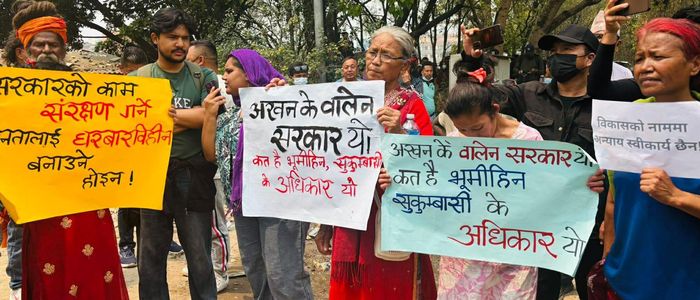 सरकारको काम
संरक्षण गर्ने
जनतालाई घरबारविहीन
बनाउने
होइन!
अखन के वालेन
सरकार यो
कत है भूमीहिन, सुकुम्बासी
के अधिकार यो
अखन के वालेन सरकार यो
कत है भूमीहिन
सुकुम्बासी के
अधिकार यो
विकासको नाममा
अन्याय स्वीकार्य छैन!